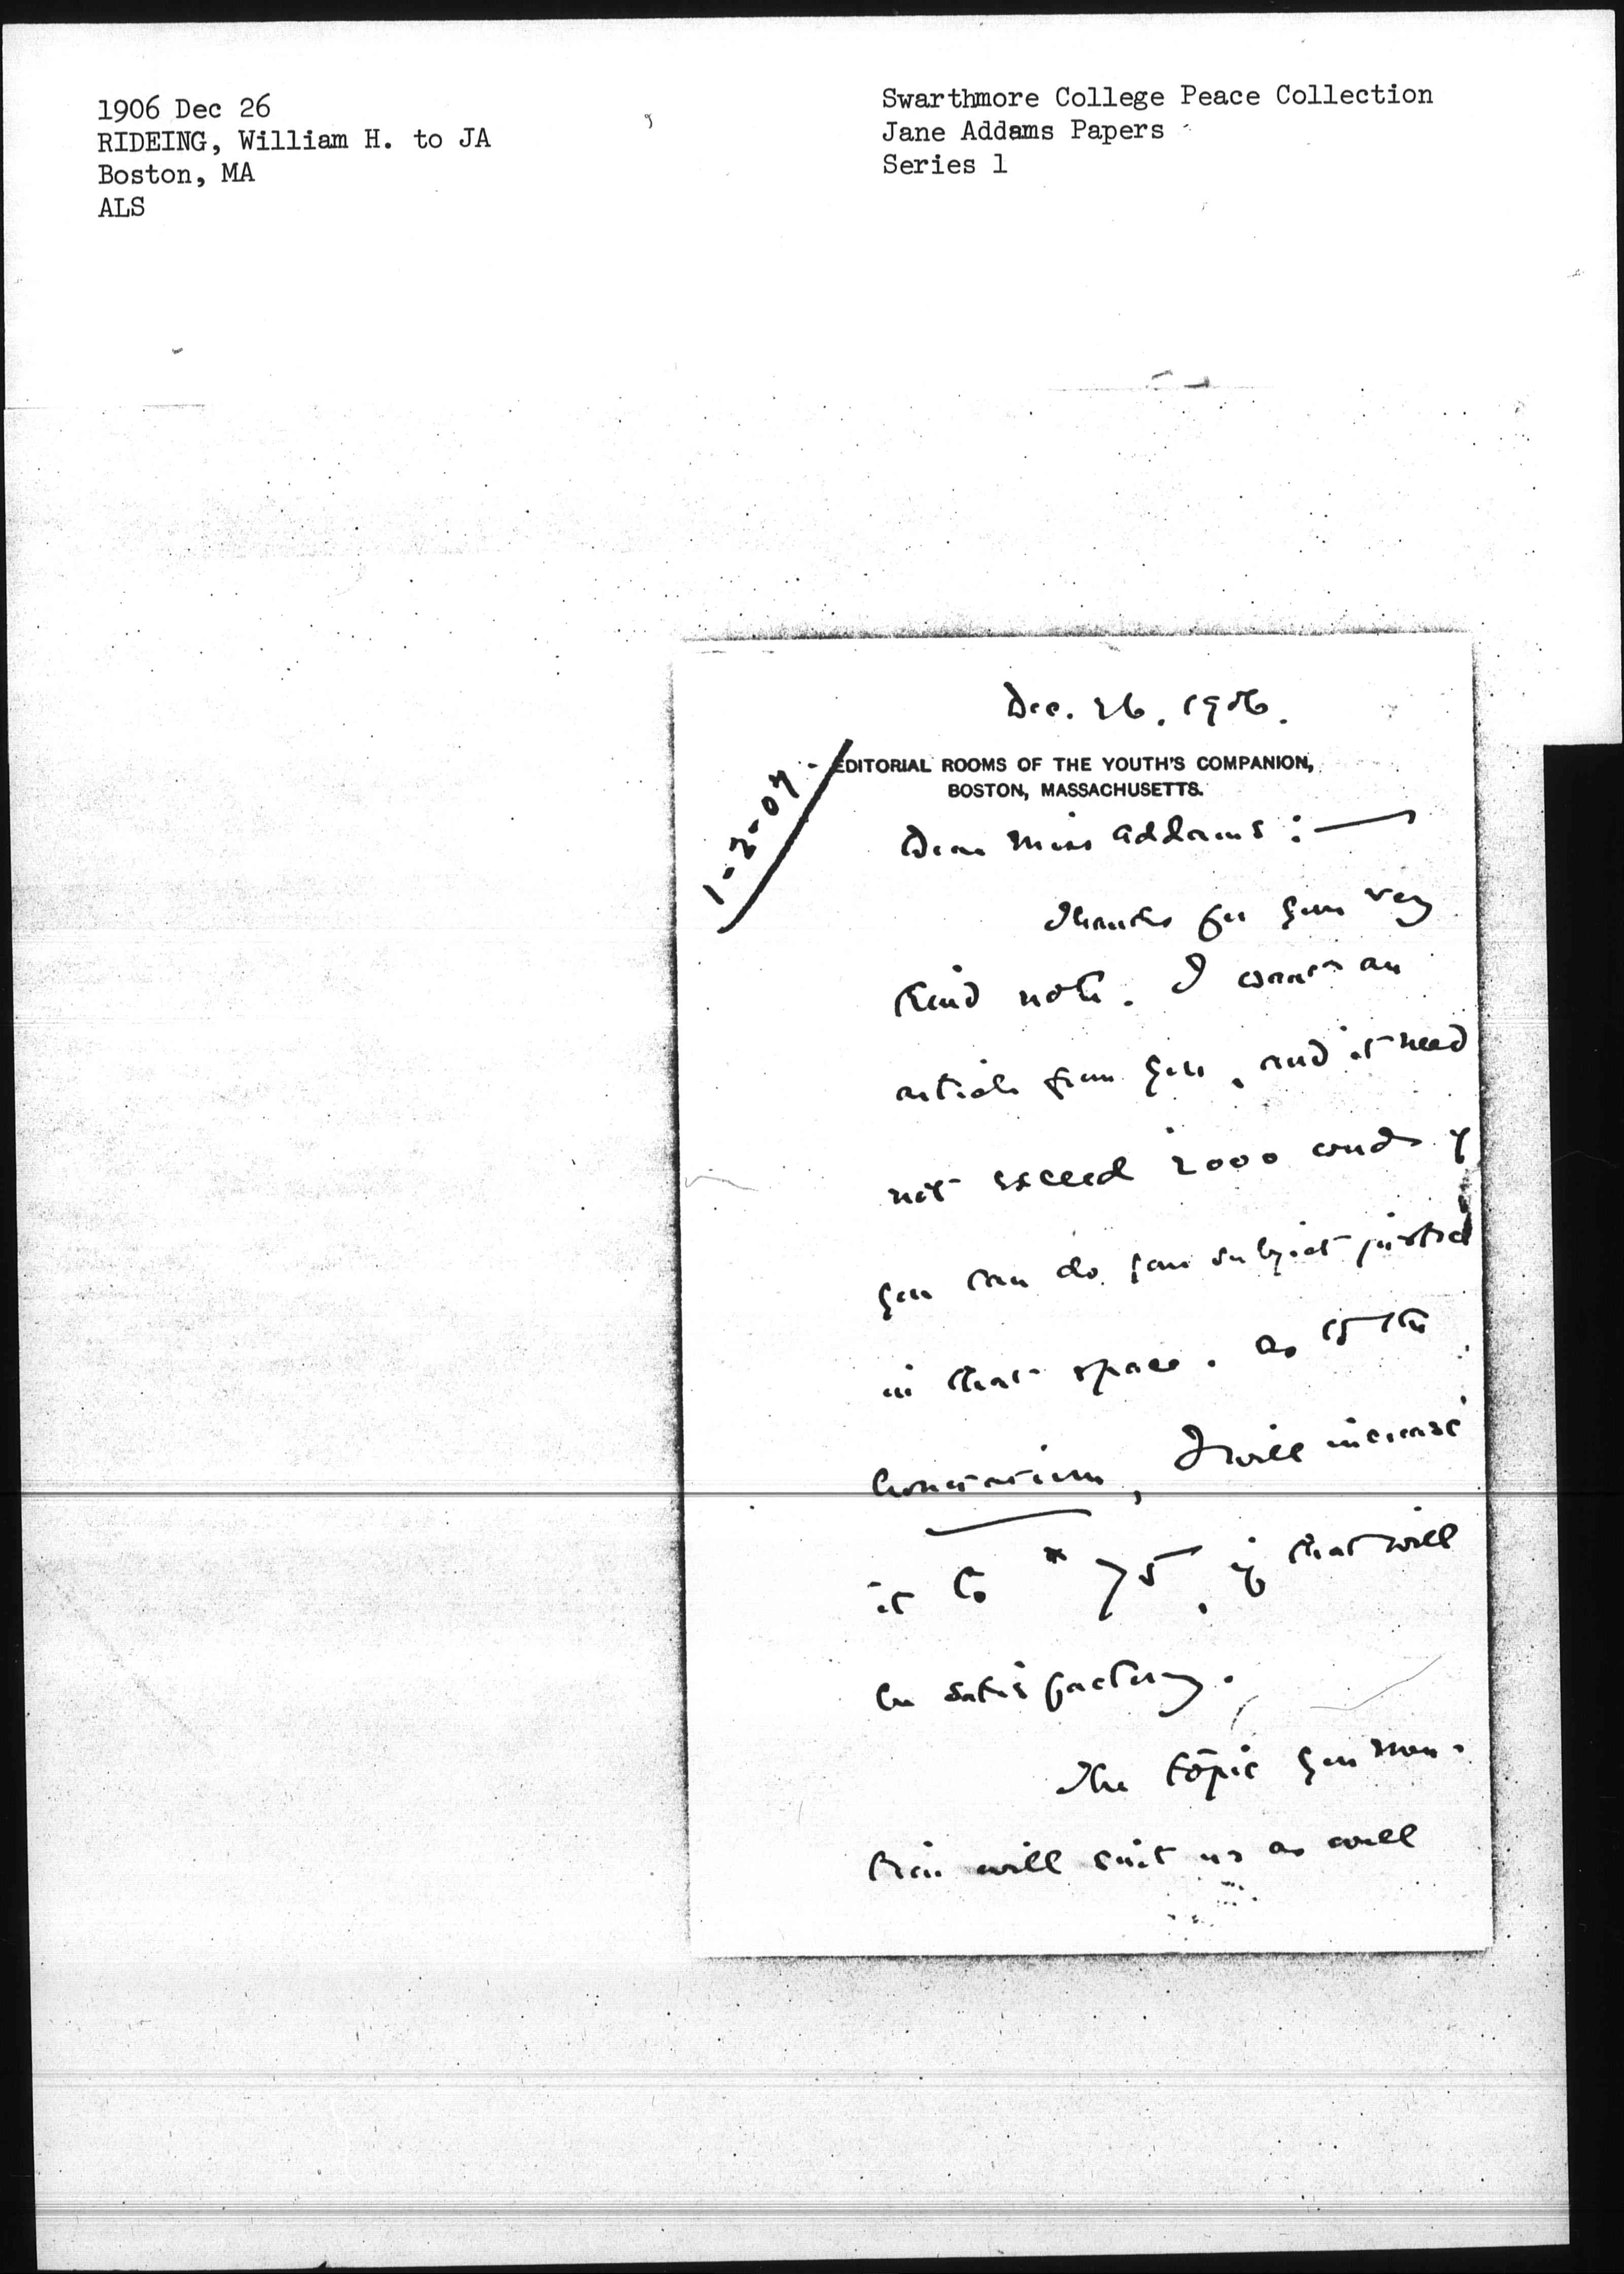 1906 Dec 26
RIDEING, William H. to JA
Boston, MA
ALS
Swarthmore College Peace Collection
Jane Addams Papers
Series 1
Dec. 26. 1906.
EDITORIAL ROOMS OF THE YOUTH'S COMPANION,
BOSTON, MASSACHUSETTS.
1-2-07
Dear Miss Addams:—
Thanks for your very
kind note. I want an
article from you, and it need
not exceed 2000 words if
you can do your subject justice
in that space. As to the
honorarium, I will increase
it to $75, if that will
be satisfactory.
The topic you men-
tion will suit us as well